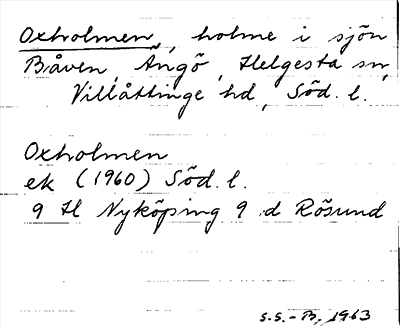 Oxholmen, holme i sjön
Båven, Ängö, Helgesta sn,
Villåttinge hd, Söd. l.
Oxholmen
ek (1960) Söd. l.
9 H Nyköping 9 d Rösund
S.S.-B, 1963